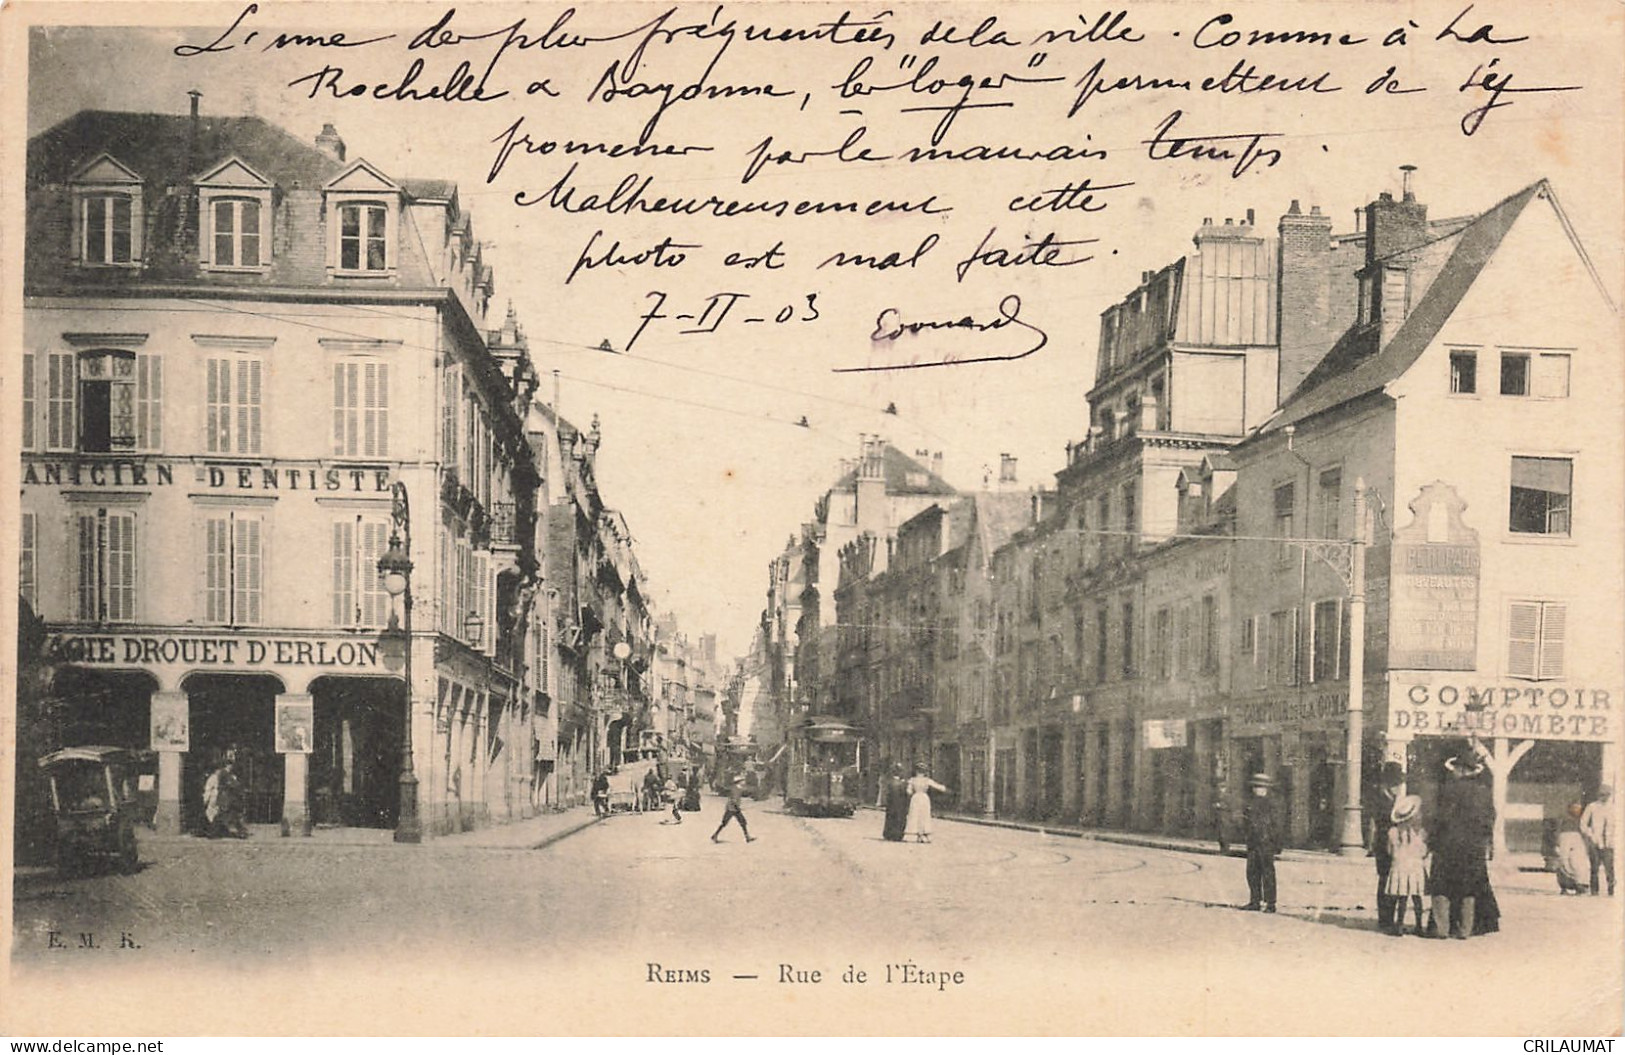 L'une des plus fréquentées de la ville. Comme à La
Rochelle & Bayonne, les "loges" permettent de s'y
promener par le mauvais temps.
Malheureusement cette
photo est mal faite.
7-II-03 Edouard
ANICIEN DENTISTE
ACIE DROUET D'ERLON
COMPTOIR DE LA COM
NOUVEAUTÉS
COMPTOIR
DE LA COMETE
27
E. M. R.
REIMS — Rue de l'Étape
delcampe.net
CRILAUMAT